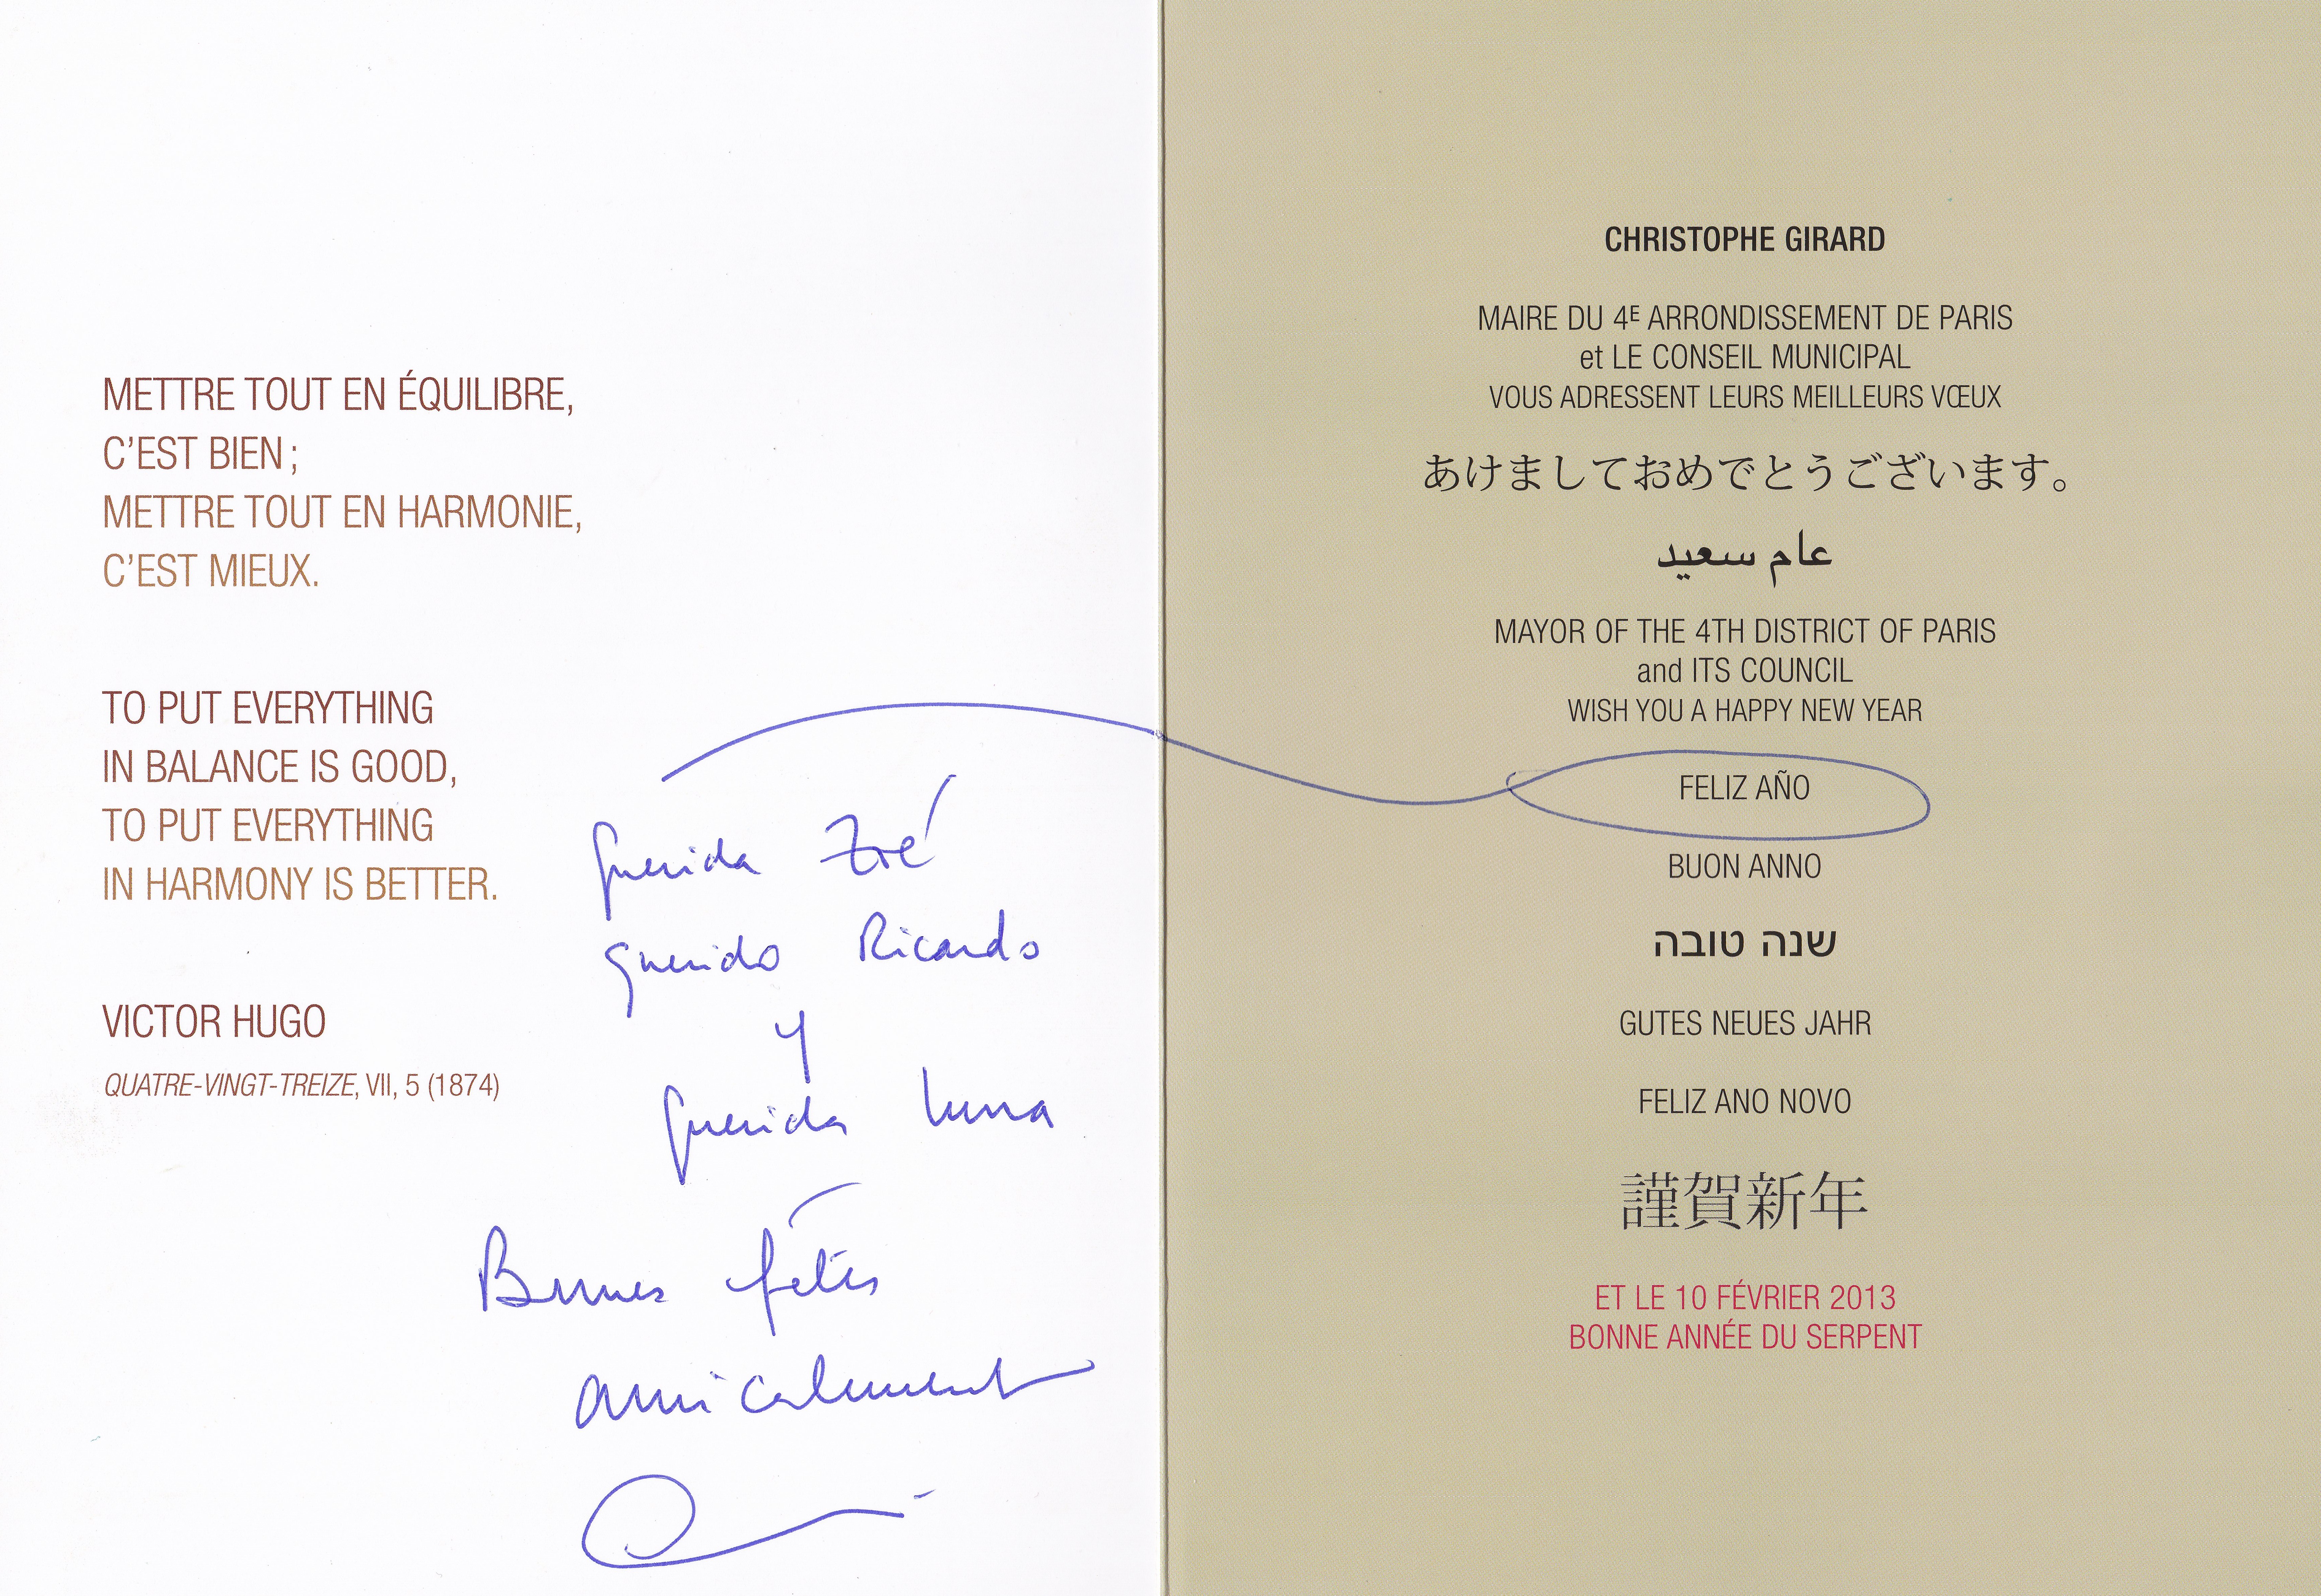 METTRE TOUT EN ÉQUILIBRE,
C'EST BIEN ;
METTRE TOUT EN HARMONIE,
C'EST MIEUX.
TO PUT EVERYTHING
IN BALANCE IS GOOD,
TO PUT EVERYTHING
IN HARMONY IS BETTER.
VICTOR HUGO
QUATRE-VINGT-TREIZE, VII, 5 (1874)
Querida Zoé
Querido Ricardo
y
Querida Luna
Bonnes fêtes
amicalement
CHRISTOPHE GIRARD
MAIRE DU 4E ARRONDISSEMENT DE PARIS
et LE CONSEIL MUNICIPAL
VOUS ADRESSENT LEURS MEILLEURS VŒUX
あけましておめでとうございます。
عام سعيد
MAYOR OF THE 4TH DISTRICT OF PARIS
and ITS COUNCIL
WISH YOU A HAPPY NEW YEAR
FELIZ AÑO
BUON ANNO
שנה טובה
GUTES NEUES JAHR
FELIZ ANO NOVO
謹賀新年
ET LE 10 FÉVRIER 2013
BONNE ANNÉE DU SERPENT